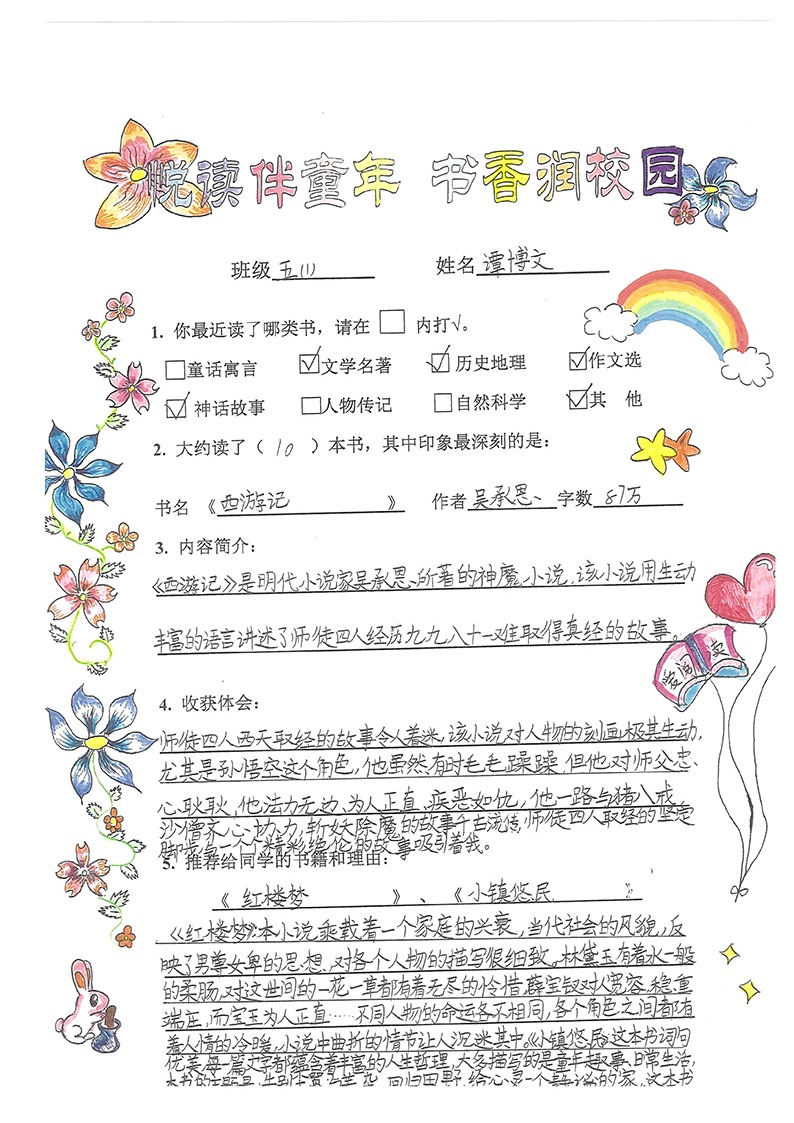 悦读伴童年 书香润校园
班级 五(1) 姓名 谭博文
1. 你最近读了哪类书，请在 □ 内打√。
□童话寓言 ☑文学名著 ☑历史地理 ☑作文选
☑神话故事 □人物传记 □自然科学 ☑其 他
2. 大约读了（ 10 ）本书，其中印象最深刻的是：
书名 《西游记》 作者 吴承恩 字数 87万
3. 内容简介：
《西游记》是明代小说家吴承恩所著的神魔小说，该小说用生动
丰富的语言讲述了师徒四人经历九九八十一难取得真经的故事。
爱阅读
4. 收获体会：
师徒四人西天取经的故事令人着迷，该小说对人物的刻画极其生动，
尤其是孙悟空这个角色，他虽然有时毛毛躁躁，但他对师父忠
心耿耿，他法力无边、为人正直、疾恶如仇，他一路与猪八戒、
沙僧齐心协力，斩妖除魔的故事千古流传，师徒四人取经的坚定
脚步与一个个精彩绝伦的故事吸引着我。
5. 推荐给同学的书籍和理由：
《 红楼梦 》、《小镇悠民 》
《红楼梦》本小说乘载着一个家庭的兴衰，当代社会的风貌，反
映了男尊女卑的思想，对各个人物的描写很细致。林黛玉有着水一般
的柔肠，对这世间的一花一草都有着无尽的怜惜，薛宝钗对人宽容、稳重
端庄，而宝玉为人正直……不同人物的命运各不相同，各个角色之间都有
着人情的冷暖，小说中曲折的情节让人沉迷其中。《小镇悠民》这本书词句
优美，每一篇文字都蕴含着丰富的人生哲理，大多描写的是童年趣事、日常生活，
回归田野，给心灵一个 的家，这本书